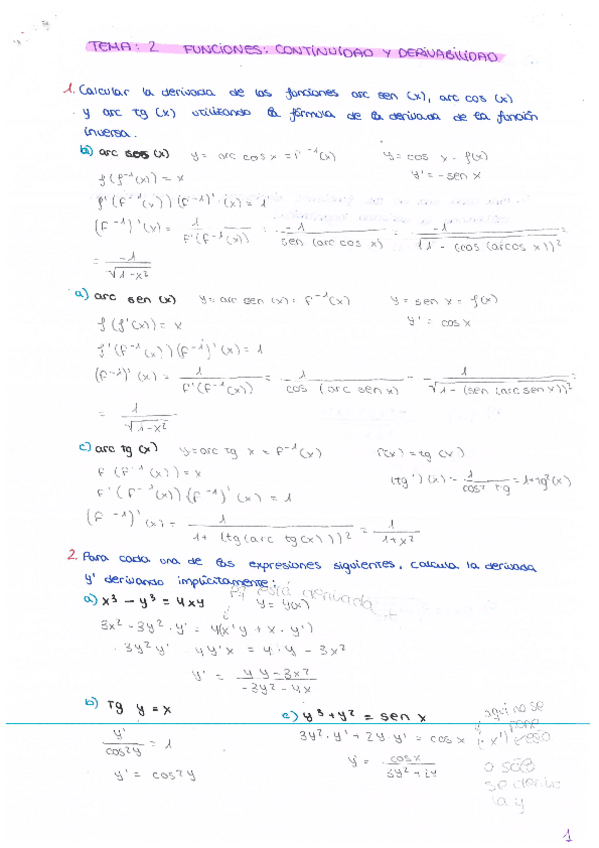 TEMA: 2 FUNCIONES: CONTINUIDAD Y DERIVABILIDAD
1. Calcular la derivada de las funciones arc sen (x), arc cos (x)
y arc tg (x) utilizando la fórmula de la derivada de la función
inversa.
b) arc cos (x) y = arc cos x = f⁻¹(x) y = cos x = f(x)
f(f⁻¹(x)) = x y' = -sen x
f'(f⁻¹(x))(f⁻¹)'(x) = 1
(f⁻¹)'(x) = 1/f'(f⁻¹(x)) = -1/sen (arc cos x) = -1/√1-(cos (arcos x))²
= -1/√1-x²
a) arc sen (x) y = arc sen (x) = f⁻¹(x) y = sen x = f(x)
f(f'(x)) = x y' = cos x
f'(f⁻¹(x))(f⁻¹)'(x) = 1
(f⁻¹)'(x) = 1/f'(f⁻¹(x)) = 1/cos (arc sen x) = 1/√1-(sen (arc sen x))² =
= 1/√1-x²
c) arc tg (x) y = arc tg x = f⁻¹(x) f(x) = tg (x)
f(f⁻¹(x)) = x (tg')(x) = 1/cos² tg = 1+tg²(x)
f'(f⁻¹(x))(f⁻¹)'(x) = 1
(f⁻¹)'(x) = 1/1+(tg(arc tg(x)))² = 1/1+x²
2. Para cada una de las expresiones siguientes, calcula la derivada
y' derivando implícitamente:
a) x³ - y³ = 4xy y = y(x) está derivada
3x² - 3y²·y' = 4(x'y + x·y')
3y²y' 4y'x = 4·y - 3x²
y' = 4y-3x²/-3y²-4x
b) tg y = x c) y³+y² = sen x aquí no se
y'/cos²y = 1 3y²·y' + 2y·y' = cos x (·x') pone eso
y' = cos²y y' = cosx/3y²+2y o sea
so deriva
la y
1